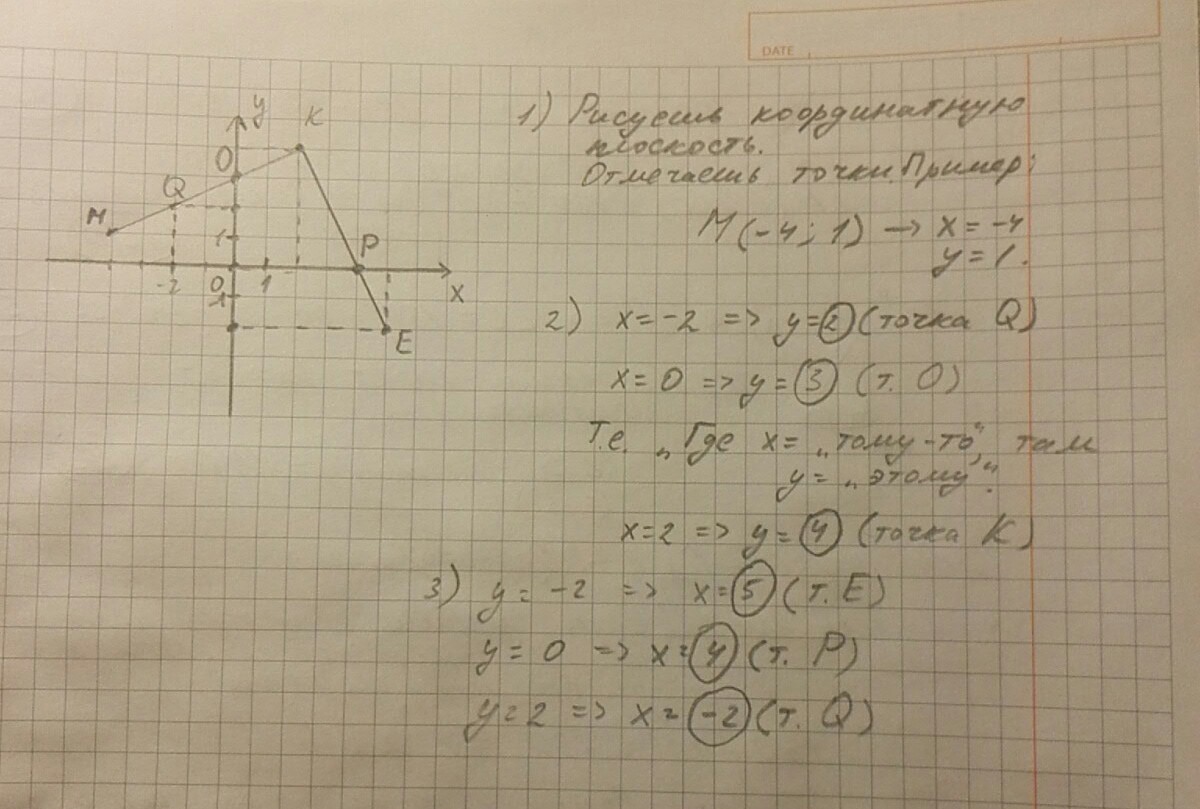 DATE
y
K
O
Q
M
1
P
-2
0
1
x
1
E
1) Рисуешь координатную
плоскость.
Отмечаешь точки. Пример:
M(-4; 1) → x = -4
y = 1.
2) x = -2 => y = 2 (точка Q)
x = 0 => y = 3 (т. O)
Т.е. „Где x = „тому-то", там
y = „этому".
x=2 => y = 4 (точка K)
3) y = -2 => x = 5 (т. E)
y = 0 => x = 4 (т. P)
y = 2 => x = -2 (т. Q)